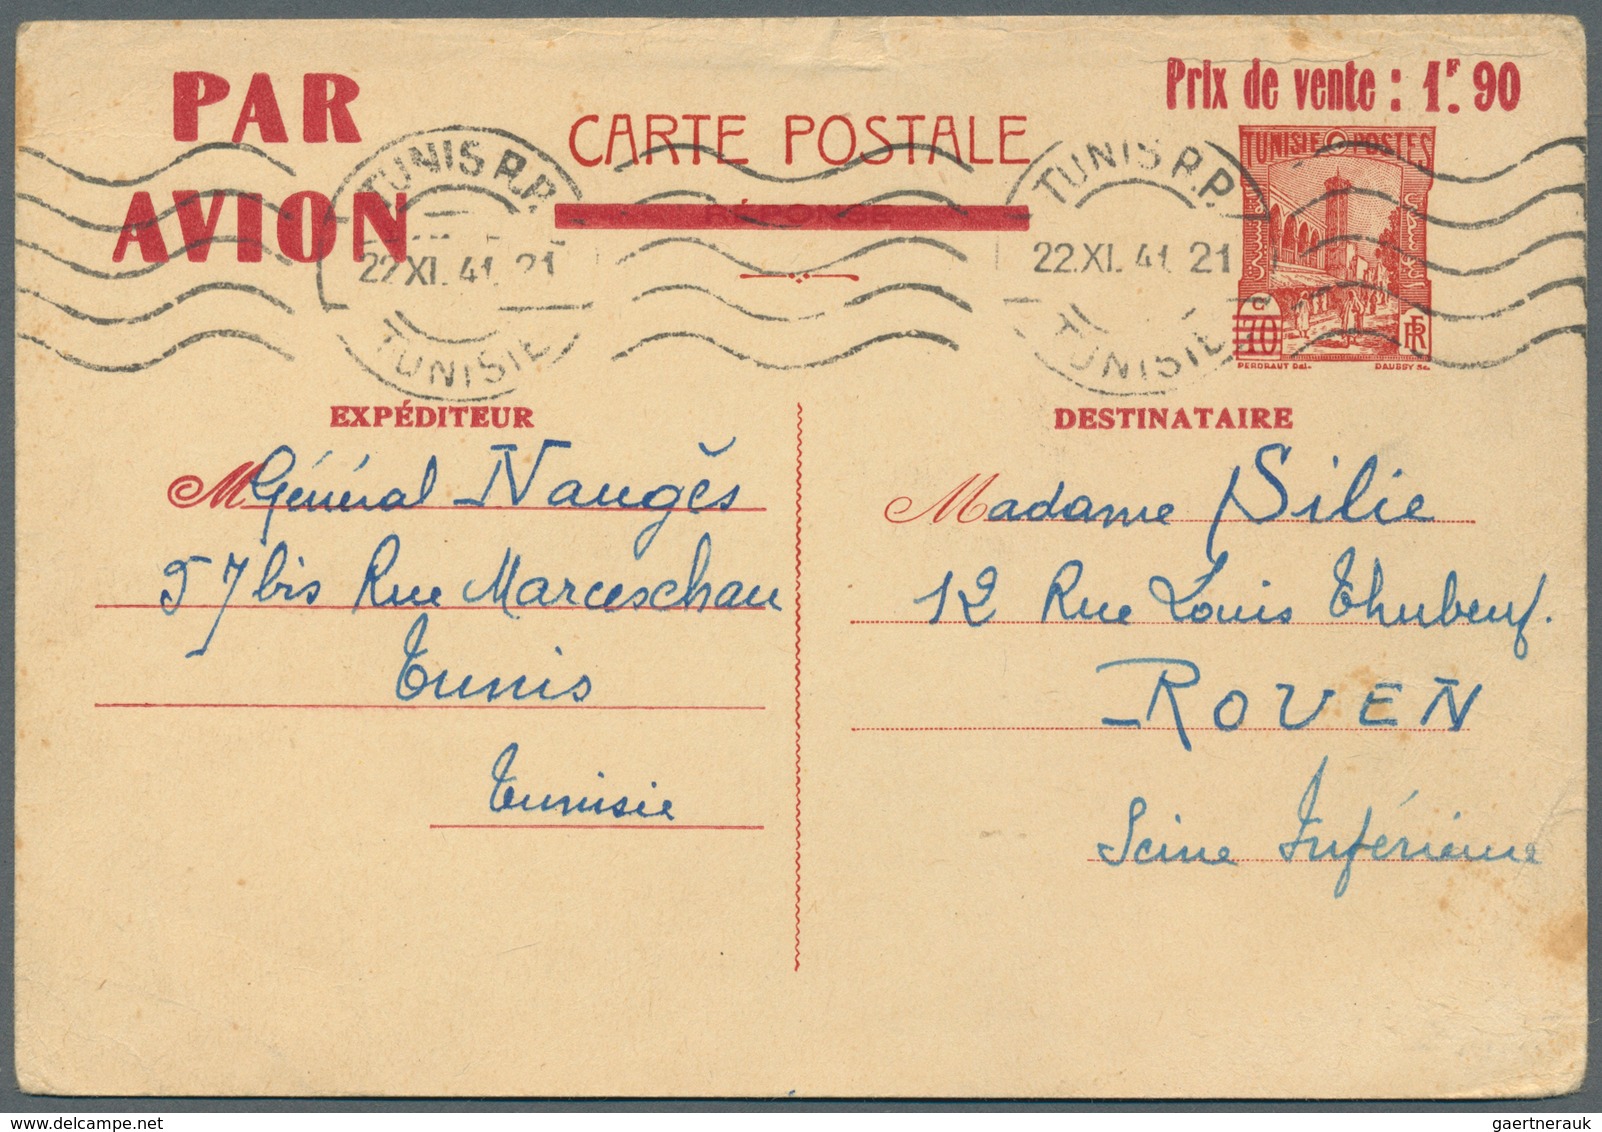 PAR
AVION
CARTE POSTALE
RÉPONSE
Prix de vente : 1F. 90
TUNIS R.P.
22 XI. 41 21
TUNISIE
TUNIS R.P.
22.XI. 41 21
TUNISIE
TUNISIE POSTES
C
70
RF
PERDRAUT Del.
DAUSSY Sc.
EXPÉDITEUR
M Général Naugès
57 bis Rue Marceschau
Tunis
Tunisie
DESTINATAIRE
Madame Silie
12 Rue Louis Thubeuf.
ROUEN
Seine Inférieure
gaertnerauk